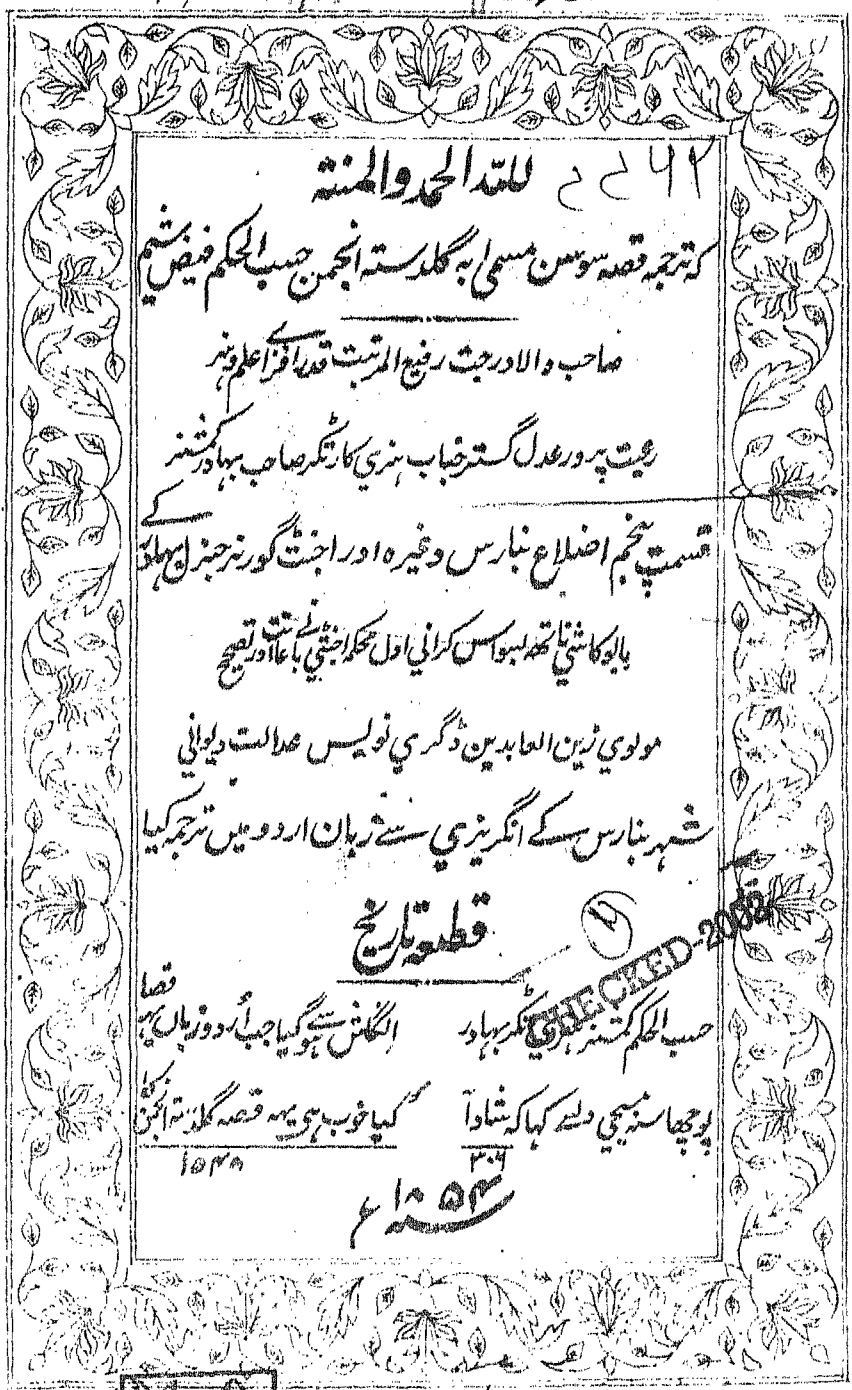 للہ الحمد والمنتہ ۷۷۶۲
کہ ترجمہ قصہ سوسن مسمیٰ بہ گلدستہ انجمن حسب الحکم فیض شیم
صاحب والا درجت رفیع المرتبت قدر افزاے علم و ہنر
رعیت پرور عدل گستر جناب ہنری کارٹکر صاحب بہادر کمشنر
قسمت پنجم اضلاع بنارس وغیرہ اور اجنٹ گورنر جنرل بہادر کے
بابو کاشی ناتھ بسواس کرانی اول محکمہ اجنٹی نے باعانت اور تصحیح
مولوی زین العابدین ڈگری نویس عدالت دیوانی
شہر بنارس کے انگریزی سے زبان اردو میں ترجمہ کیا
قطعہ تاریخ
CHECKED-2002
حسب الحکم کمشنر ہنری ٹکر بہادر انگلش سے ہو گیا جب اُردو زباں یہہ قصا
پوچھا سنہ مسیحی دلنے کہا کہ شاداؔ کیا خوب ہی یہہ قصہ گلدستہ انجمن کا
۳۰۶ ۱۵۴۸
سنہ ۱۸۵۴ ء